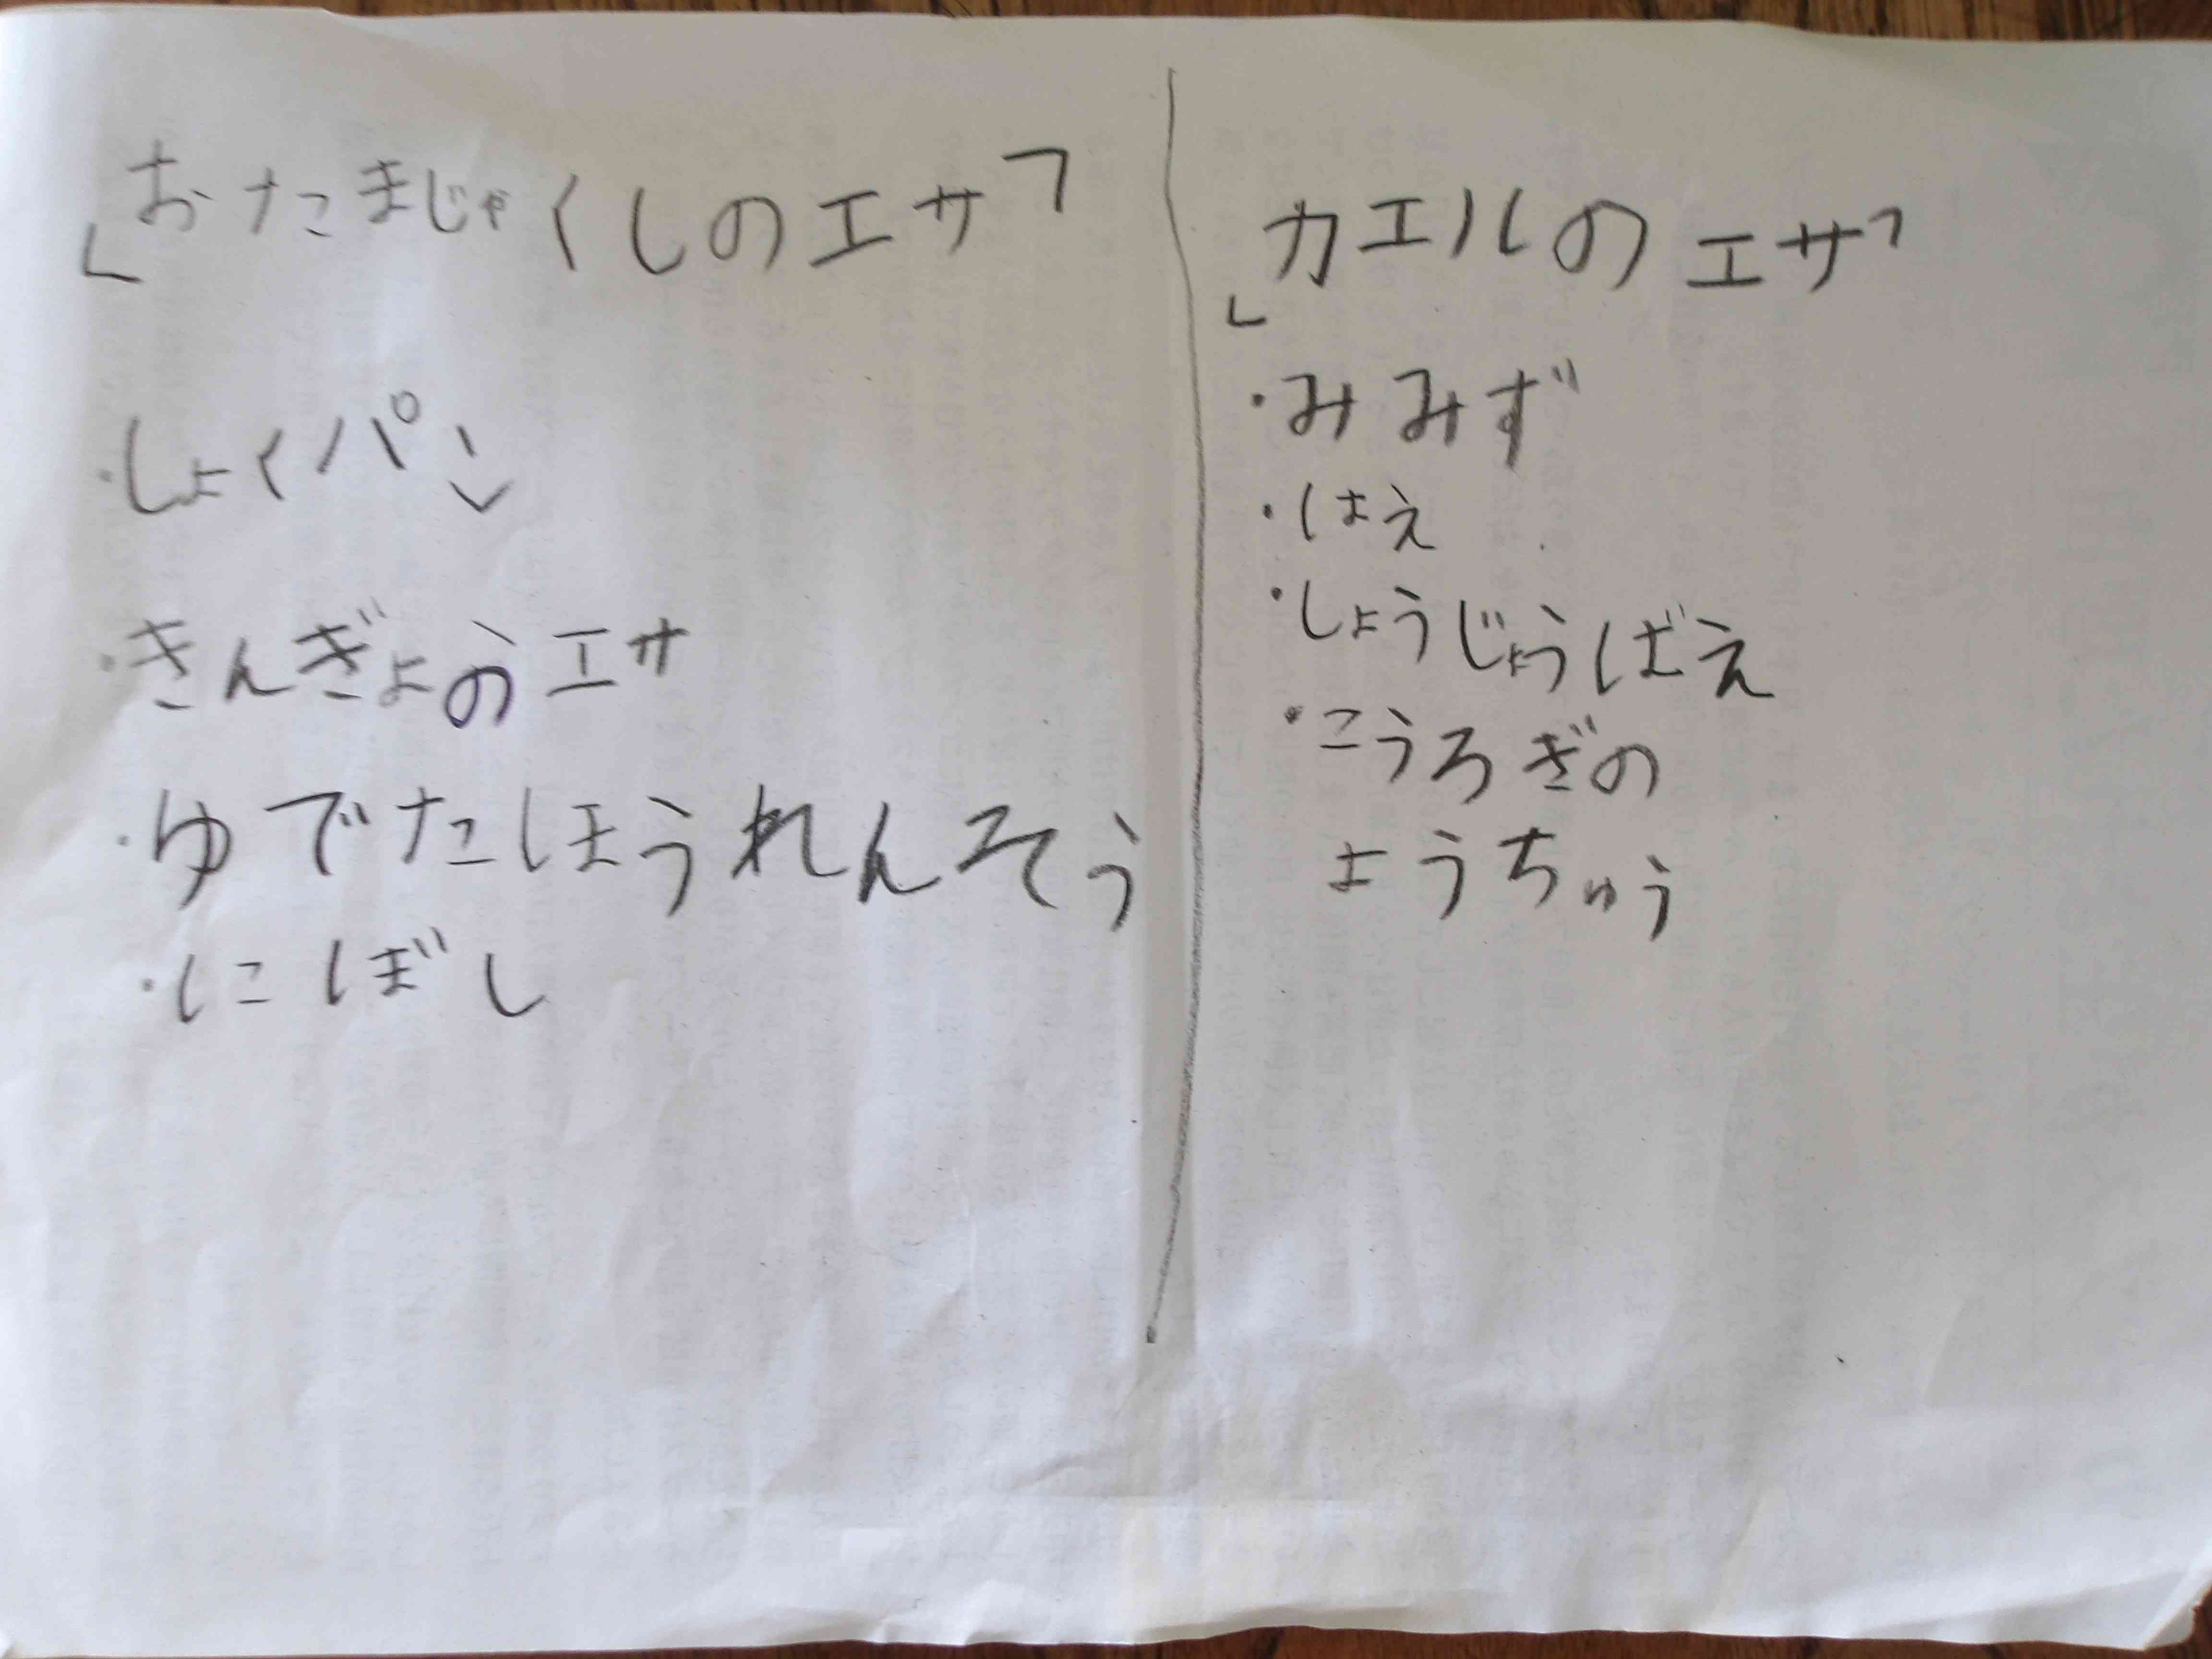 「おたまじゃくしのエサ」
・しょくパン
・きんぎょのエサ
・ゆでたほうれんそう
・にぼし
「カエルのエサ」
・みみず
・はえ
・しょうじょうばえ
・こうろぎの
ようちゅう